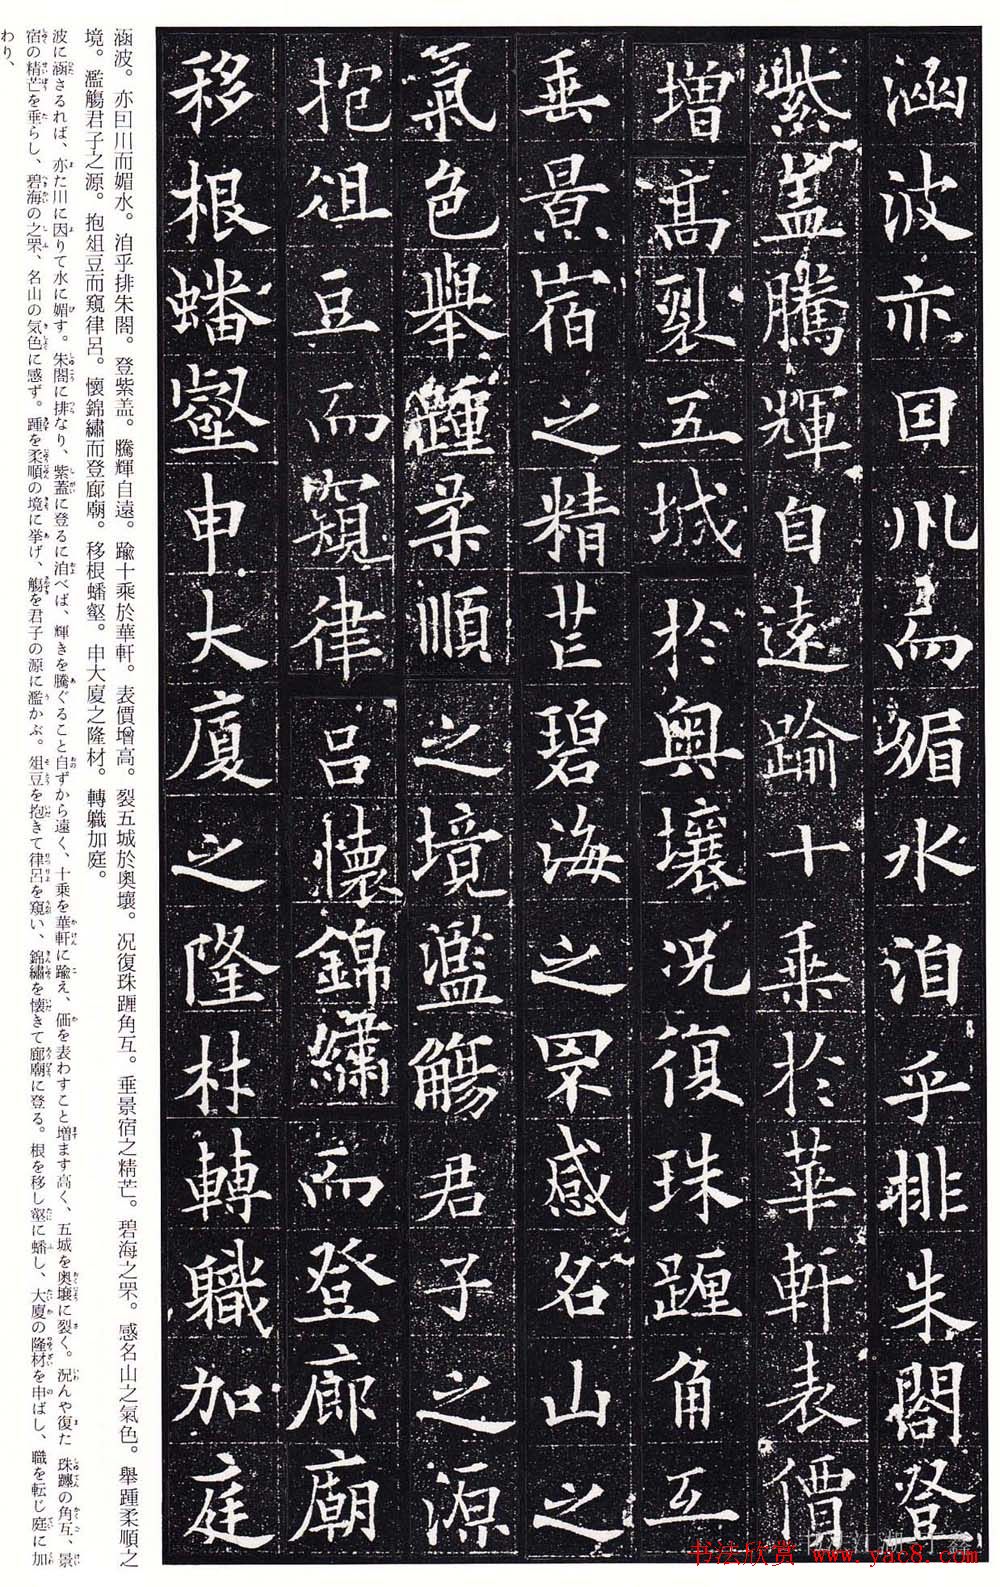 涵波亦因川而媚水洎乎排朱閣登
紫盖騰輝自遠踰十乘於華軒表價
增高裂五城於奧壤況復珠躔角互
垂景宿之精芒碧海之罘感名山之
氣色舉踵柔順之境濫觴君子之源
抱俎豆而窺律呂懷錦繡而登廊廟
移根蟠壑申大廈之隆材轉職加庭
涵波。亦曰川而媚水。洎乎排朱閣。登紫盖。騰輝自遠。踰十乘於華軒。表價增高。裂五城於奧壤。况復珠躔角互。垂景宿之精芒。碧海之罘。感名山之氣色。舉踵柔順之
境。濫觴君子之源。抱俎豆而窺律呂。懷錦繡而登廊廟。移根蟠壑。申大廈之隆材。轉職加庭。
波に涵さるれば、亦た川に因りて水に媚す。朱閣に排なり、紫蓋に登るに洎べば、輝きを騰ぐること自ずから遠く、十乘を華軒に踰え、価を表わすこと増ます高く、五城を奧壤に裂く。況んや復た珠躔の角互、景
宿の精芒を垂らし、碧海の之罘、名山の気色に感ず。踵を柔順の境に挙げ、觴を君子の源に濫かぶ。俎豆を抱きて律呂を窺い、錦繡を懐きて廊廟に登る。根を移し壑に蟠し、大廈の隆材を申ばし、職を転じ庭に加
わり、
书法欣赏 www.yac8.com